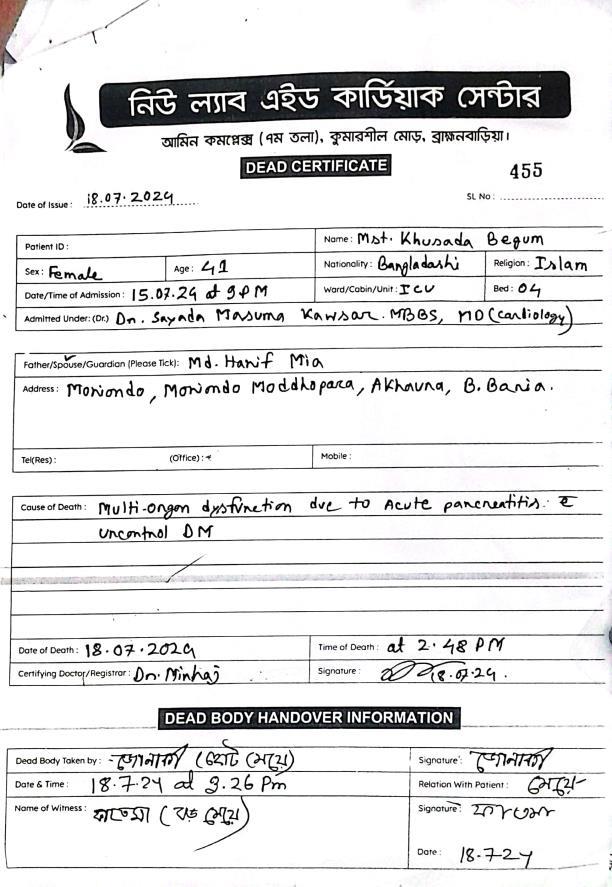 নিউ ল্যাব এইড কার্ডিয়াক সেন্টার
আমিন কমপ্লেক্স (৭ম তলা), কুমারশীল মোড়, ব্রাহ্মনবাড়িয়া।
DEAD CERTIFICATE
455
Date of Issue : 18.07.2024
SL No :
Patient ID :
Name : Mst. Khusada Begum
Sex : Female Age : 41 Nationality : Bangladashi Religion : Islam
Date/Time of Admission : 15.07.24 at 9 PM Ward/Cabin/Unit : ICU Bed : 04
Admitted Under: (Dr.) Dr. Sayada Masuma Kawsar. MBBS, MD (cardiology)
Father/Spouse/Guardian (Please Tick) : Md. Hanif Mia
Address : Moniondo, Moniondo Moddhopara, Akhaura, B. Baria.
Tel(Res) : (Office) : Mobile :
Cause of Death : Multi-organ dysfunction due to Acute pancreatitis c̄
uncontrol DM
Date of Death : 18.07.2024 Time of Death : at 2.48 PM
Certifying Doctor/Registrar : Dr. Minhaj Signature : 18.07.24.
DEAD BODY HANDOVER INFORMATION
Dead Body Taken by : সোনাকী (ছোট মেয়ে) Signature : সোনাকী
Date & Time : 18.7.24 at 3.26 Pm Relation With Patient : মেয়ে
Name of Witness : ফাতেমা (বড় মেয়ে) Signature : ফাতেমা
Date : 18-7-24